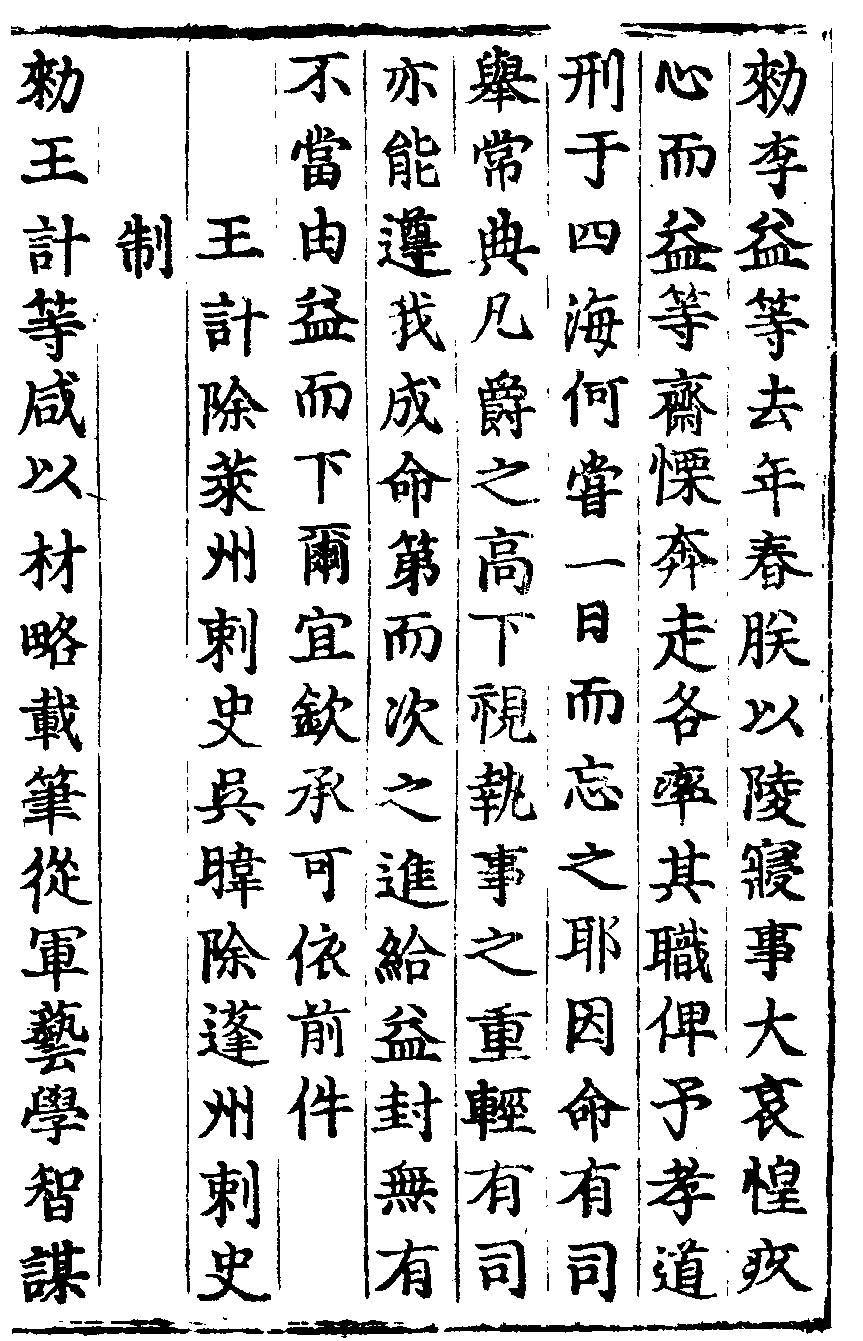 勑李益等去年春朕以陵寢事大哀惶疚
心而益等齋慄奔走各率其職俾予孝道
刑于四海何嘗一日而忘之耶因命有司
舉常典凡爵之高下視執事之重輕有司
亦能遵我成命第而次之進給益封無有
不當由益而下爾宜欽承可依前件
王計除萊州刺史吳暐除蓬州刺史
制
勑王計等咸以材略載筆從軍藝學智謀